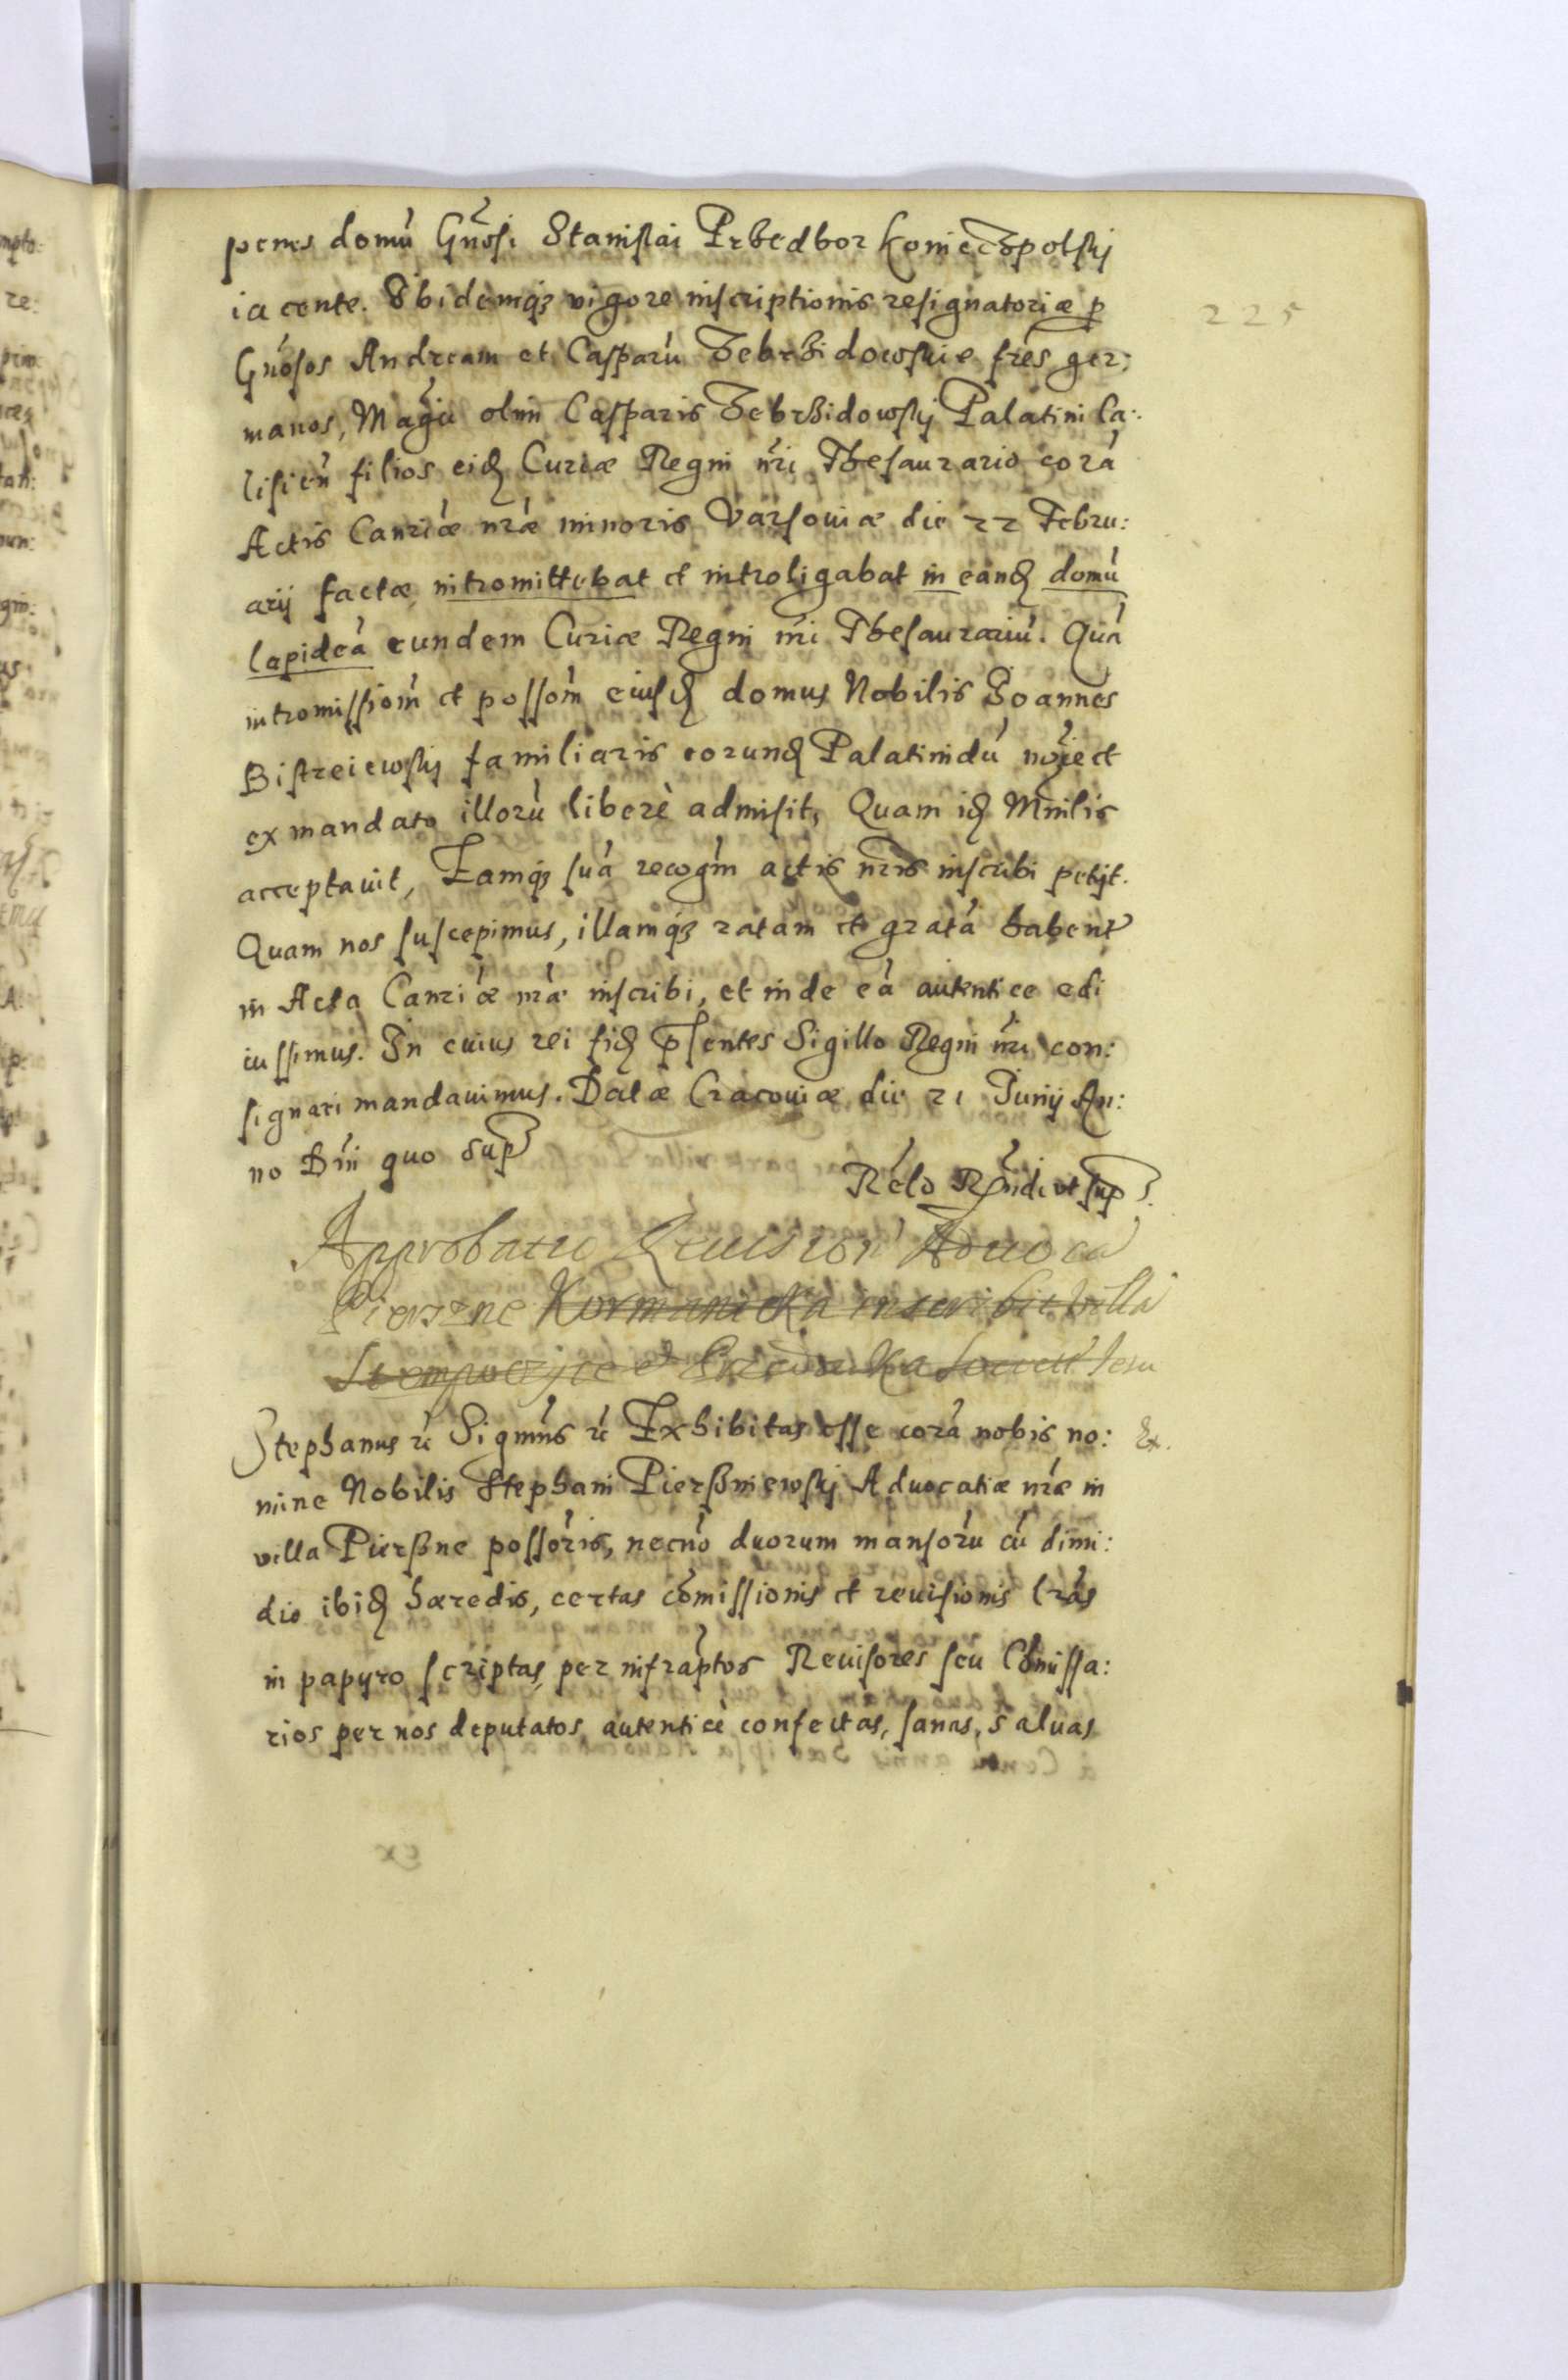 penes domú Gnósi Stanislai Przedbor Konieczpolskj
iacente. Ibidemq́ʒ vigore inscriptionis resignatoriæ p
225
Gnósos Andream et Casparú Zebrzidowskie frés ger:
manos, Magci olim Casparis Zebrzidowskj Palatini Ca:
lisień filios eid Curiæ Regni nri Thesaurario corá
Actis Canriæ nræ minoris Varsouiæ die 22 Febru:
arij factæ intromittebat et introligabat in eand domú
lapideá eundem Curiæ Regni nri Thesaurariú. Quá
intromissiom et possom eiusd domus Nobilis Joannes
Bistreiewskj familiaris eorund Palatinidú noie et
ex mandato illorú liberè admisit, Quam id Mnilis
acceptauit, Eamq́ʒ suá recogm actis nris inscribi petijt.
Quam nos suscepimus, illamq́ʒ ratam et gratá habent
in Acta Canriæ nræ inscribi, et inde eá autentice edi
iussimus. In cuius rei fid pńtes Sigillo Regni nri con:
signari mandauimus. Datæ Cracouiæ die 21 Junij An:
no Dni quo sup
Relo Rndi ut sup.
Approbatio Reuision Aduoca
Pierszne Kormanicka inscribit villa
Stephanus rc Sigmns rc Exhibitas esse corá nobis no: Ex.
mine Nobilis Stephani Pierszniewskj Aduocatiæ nræ in
villa Pierszne possoris, necnó duorum mansorú cú dimi:
dio ibid hæredis, certas comissionis et reuisionis lras
in papyro scriptas, per infraptos Reuisores seu Comissa:
rios per nos deputatos, autenticè confectas, sanas, saluas